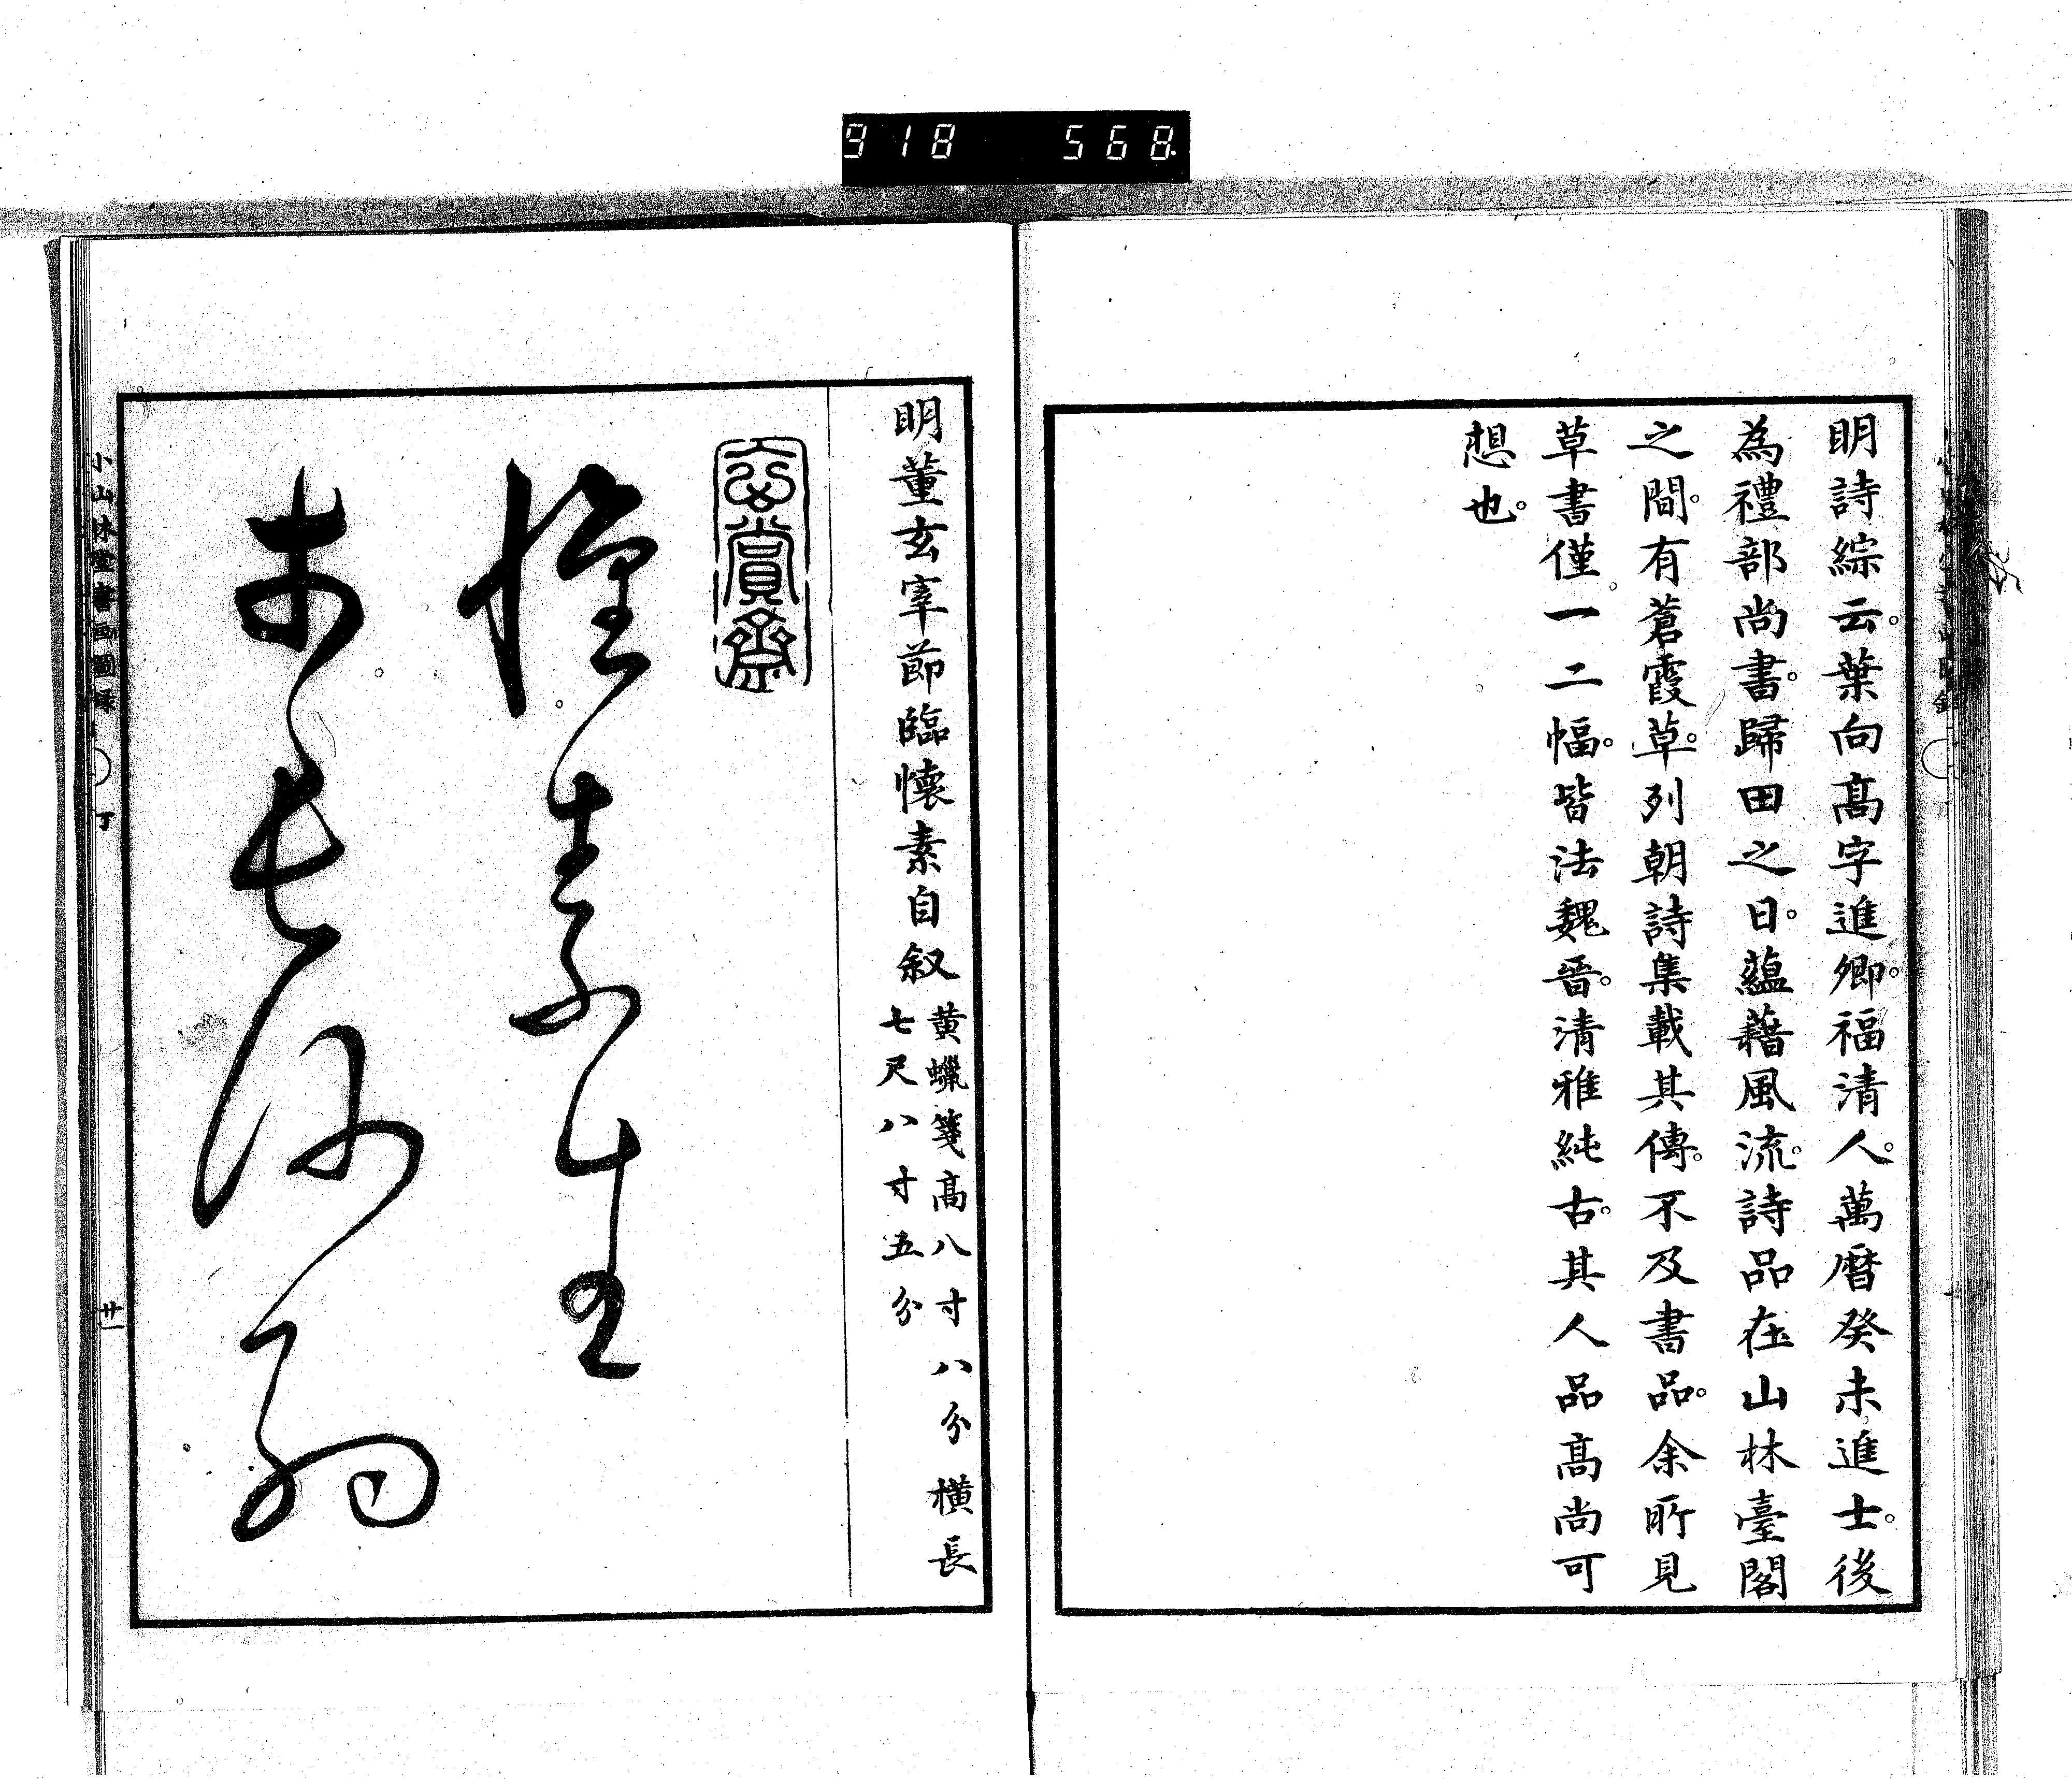 918 568
明詩綜云。葉向髙字進卿。福清人。萬曆癸未進士。後
為禮部尚書。歸田之日。蘊藉風流。詩品在山林臺閣
之間。有蒼霞草。列朝詩集載其傳。不及書品。余所見
草書僅一二幅。皆法魏晉。清雅純古。其人品髙尚可
想也。
明董玄宰節臨懷素自叙
黄蠟箋髙八寸八分橫長
七尺八寸五分
玄賞齋
懷素生
長沙幼
小山林堂書画圖録 丁 廿一